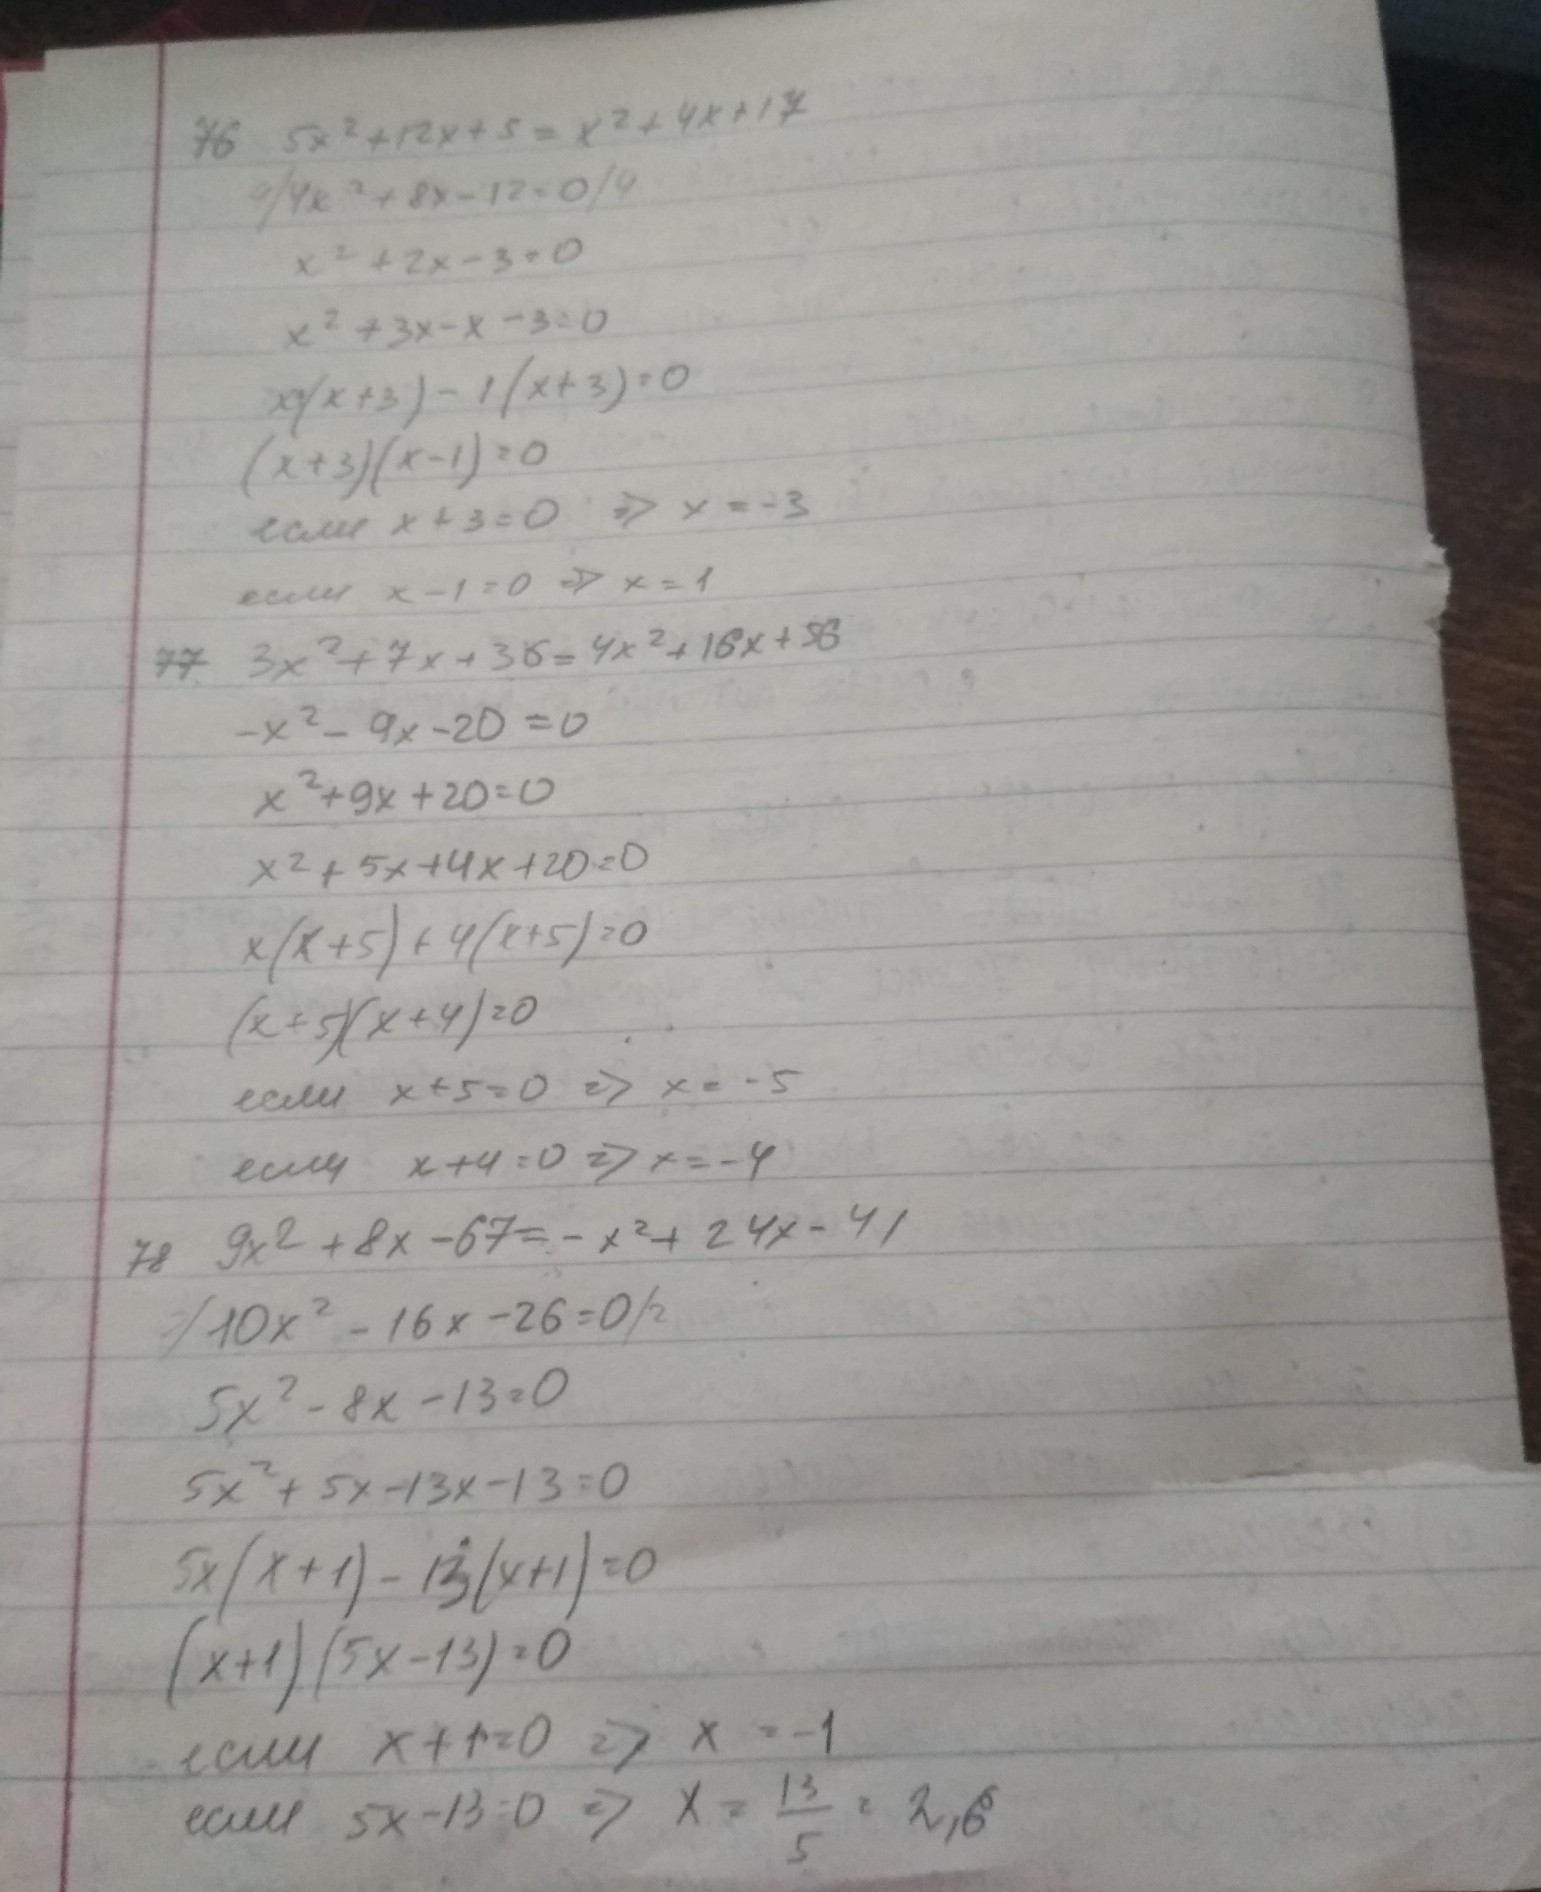 76 5x²+12x+5=x²+4x+17
4/4x²+8x-12=0/4
x²+2x-3=0
x²+3x-x-3=0
x(x+3)-1(x+3)=0
(x+3)(x-1)=0
если x+3=0 => x=-3
если x-1=0 => x=1
77 3x²+7x+36=4x²+16x+56
-x²-9x-20=0
x²+9x+20=0
x²+5x+4x+20=0
x(x+5)+4(x+5)=0
(x+5)(x+4)=0
если x+5=0 => x=-5
если x+4=0 => x=-4
78 9x²+8x-67=-x²+24x-41
2/10x²-16x-26=0/2
5x²-8x-13=0
5x²+5x-13x-13=0
5x(x+1)-13(x+1)=0
(x+1)(5x-13)=0
если x+1=0 => x=-1
если 5x-13=0 => x=13/5=2,6